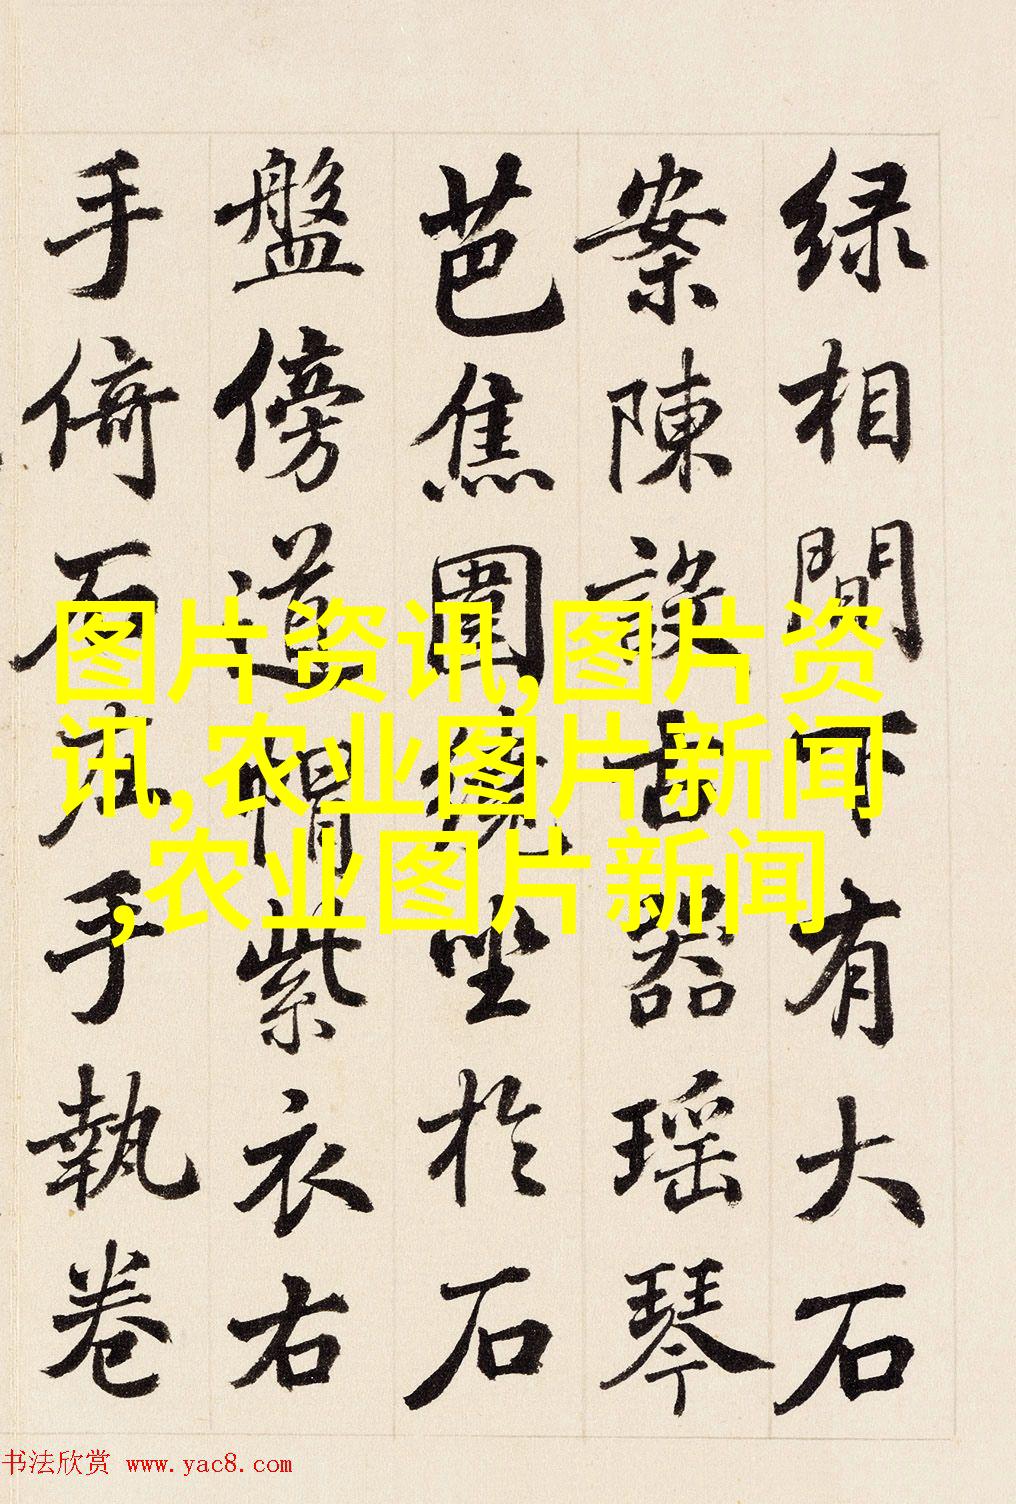 绿相間下有大石
案陳設古器瑶琴
芭焦圍繞坐於石
盤傍道帽紫衣右
手倚石左手執卷
图片资讯,图片资
讯,农业图片新闻
,农业图片新闻
书法欣赏 www.yac8.com